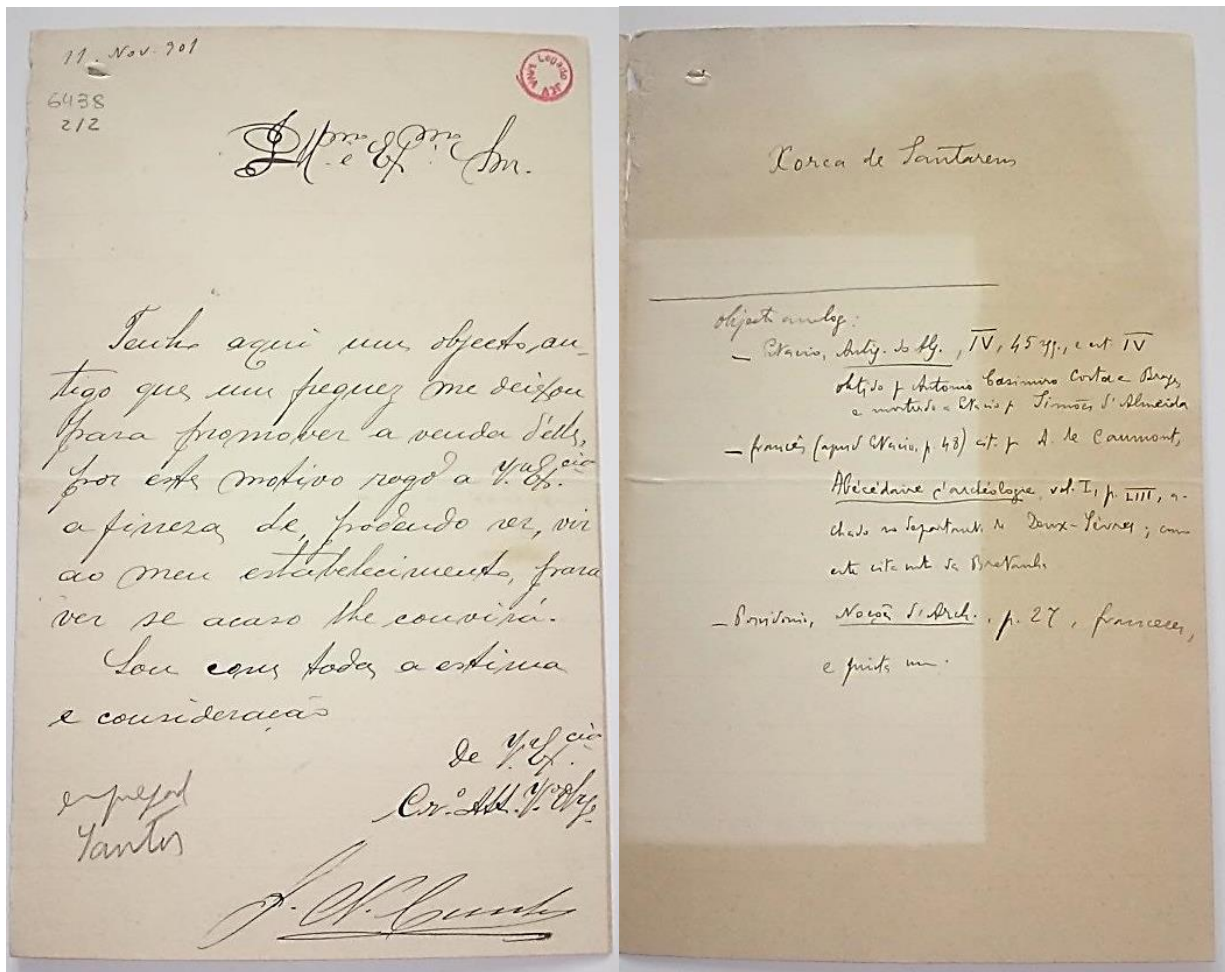 11. Nov. 901
6438
212
Legado JLV MNA
Ill.mo e Ex.mo Snr.
Tenho aqui um objecto, an-
tigo que um freguez me deixou
para promover a venda d'elle,
por este motivo rogo a V.Ex.cia
a fineza de, podendo ser, vir
ao meu estabelecimento, para
ver se acaso lhe convirá.
Sou com toda a estima
e consideração
De V.Ex.cia
Cr.º Att. V.or Obg.
Santos
Xorca de Santarem
object analog:
— Estacio, Antig. do Alg., IV, 45 sgg., e est IV
obtido p Antonio Casimiro Costa e Braga
e mostrado a Estacio p. Simões d'Almeida
— francês (apud Estacio, p. 48) cit. p. A. de Caumont,
Abécédaire d'archéologie, vol. I, p. LIII, a-
chado no departamt. de Deux-Sèvres; com
este cita mt da Bretanha
— Possidonio, Noções d'Arch., p. 27, franceses,
e junta um.